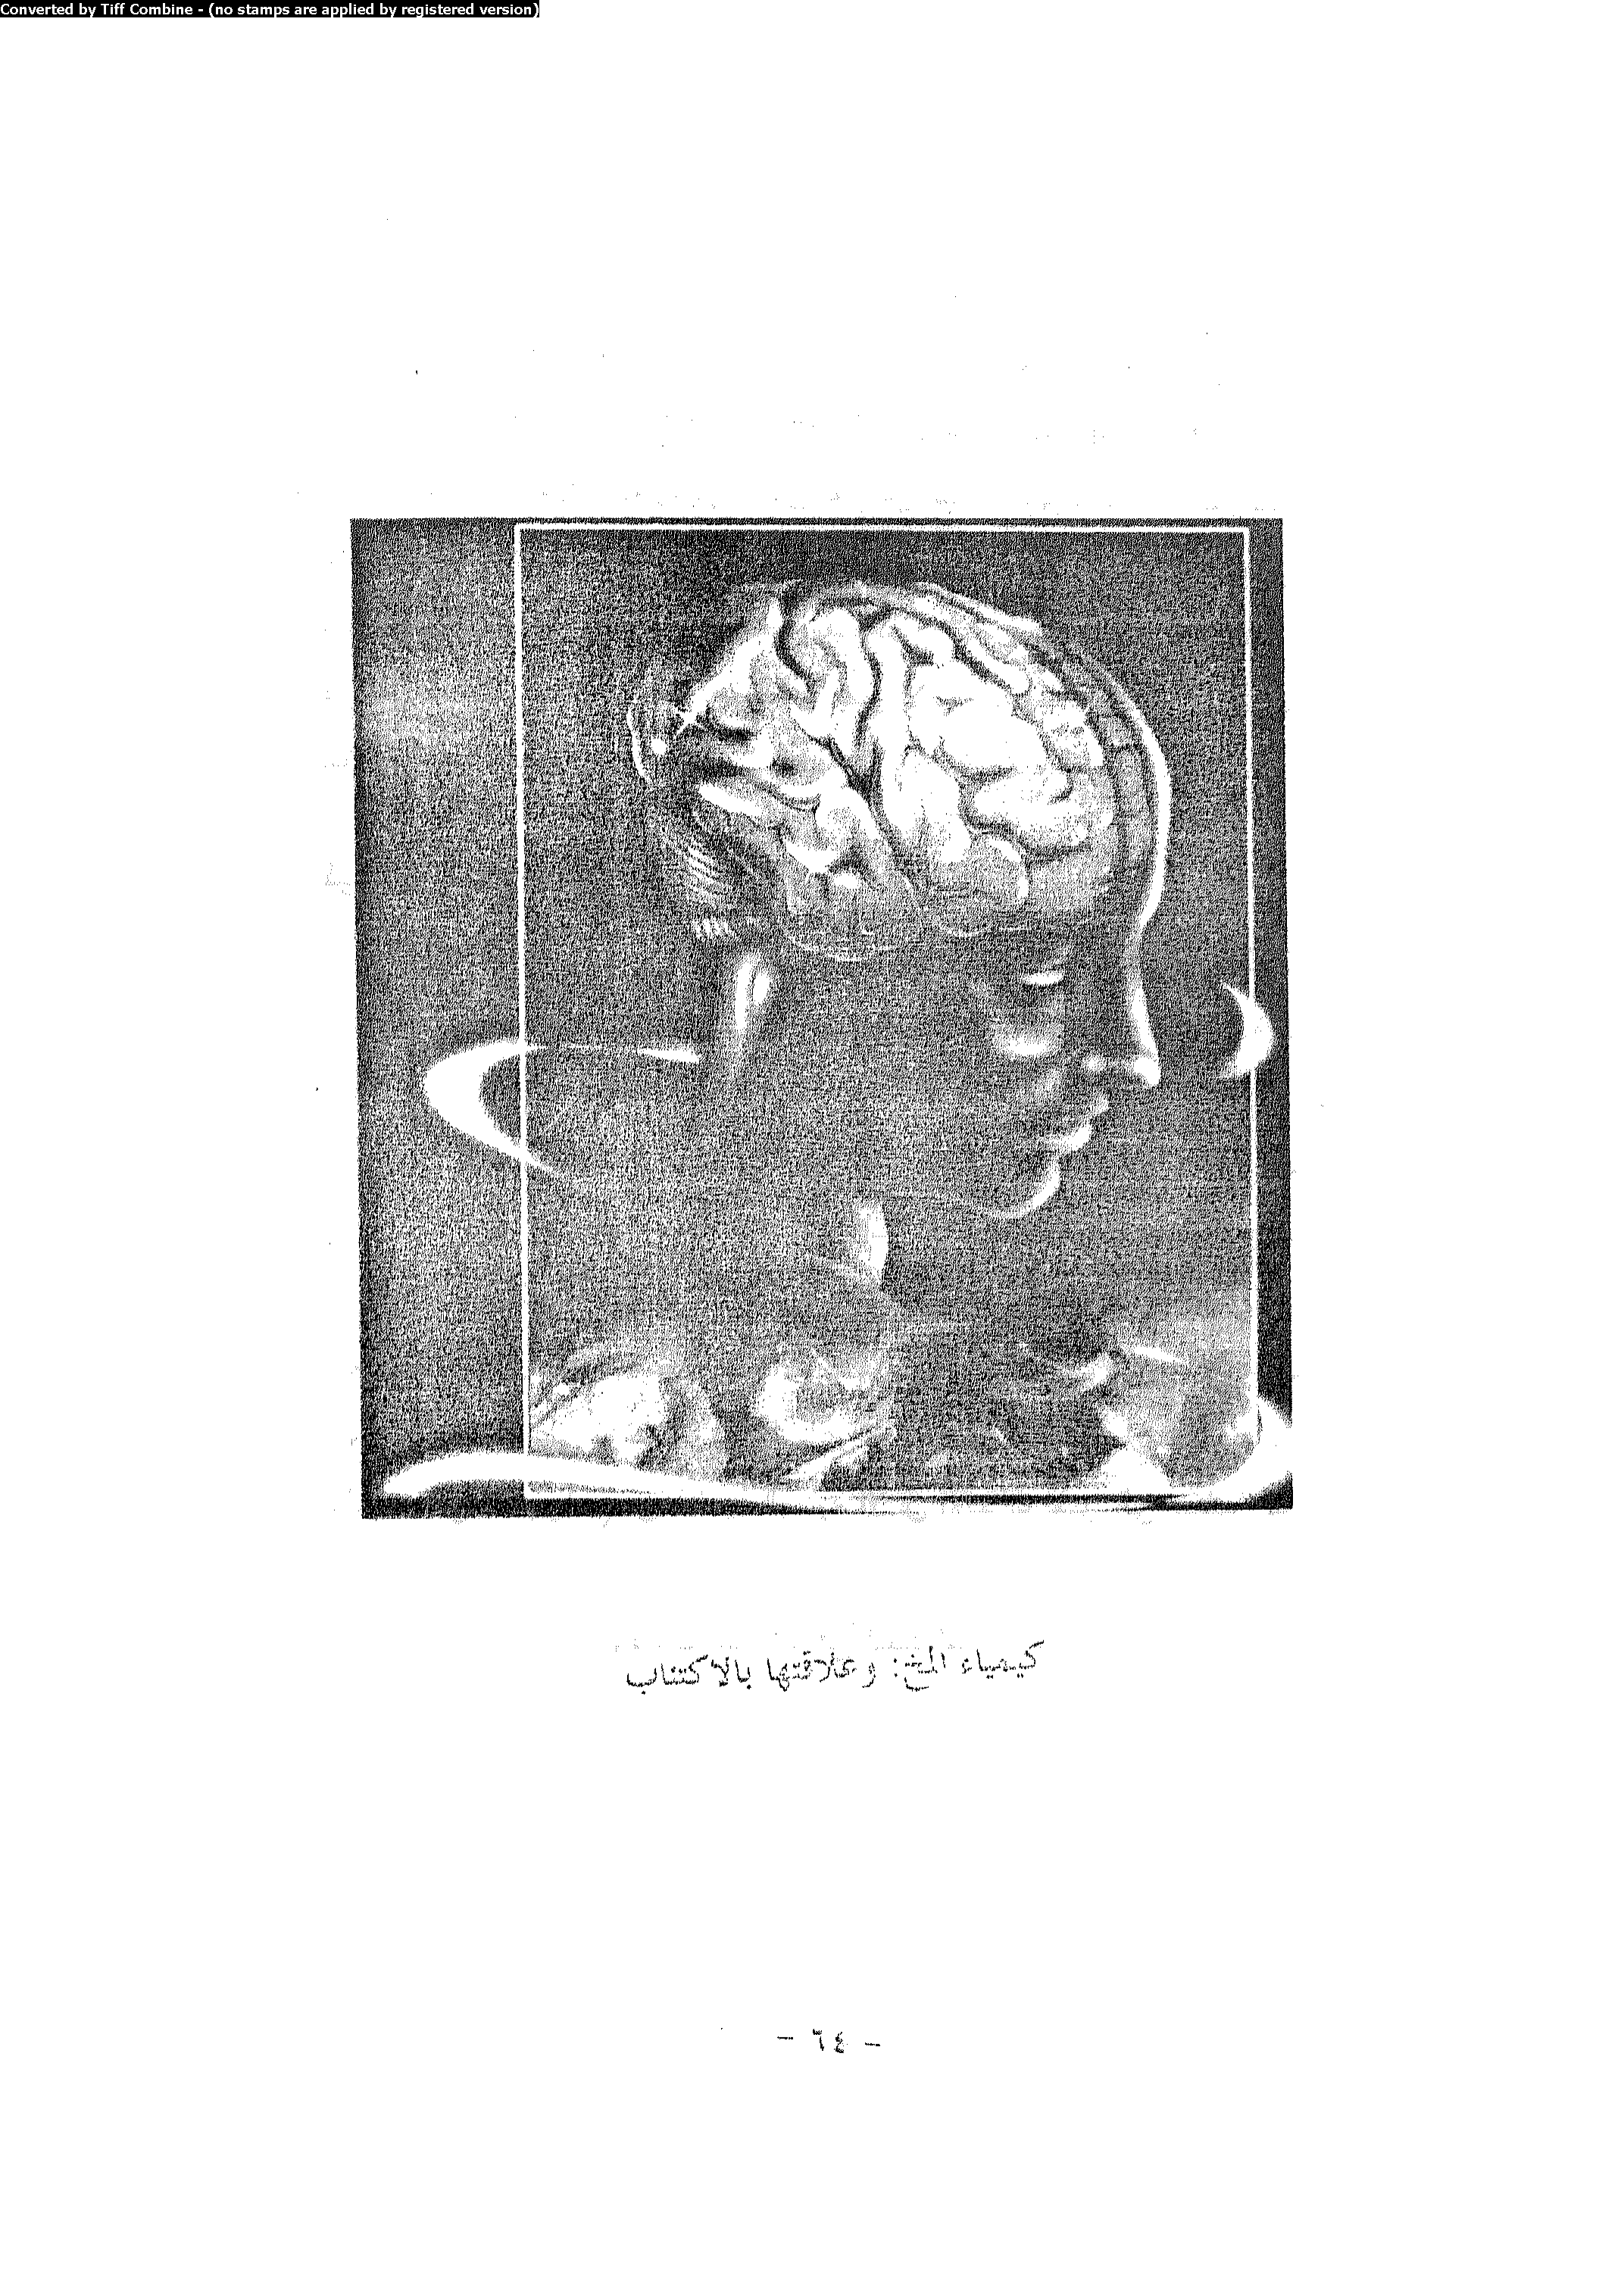 Converted by Tiff Combine - (no stamps are applied by registered version)
كيمياء المخ: وعلاقتها بالاكتئاب
- ٦٤ -